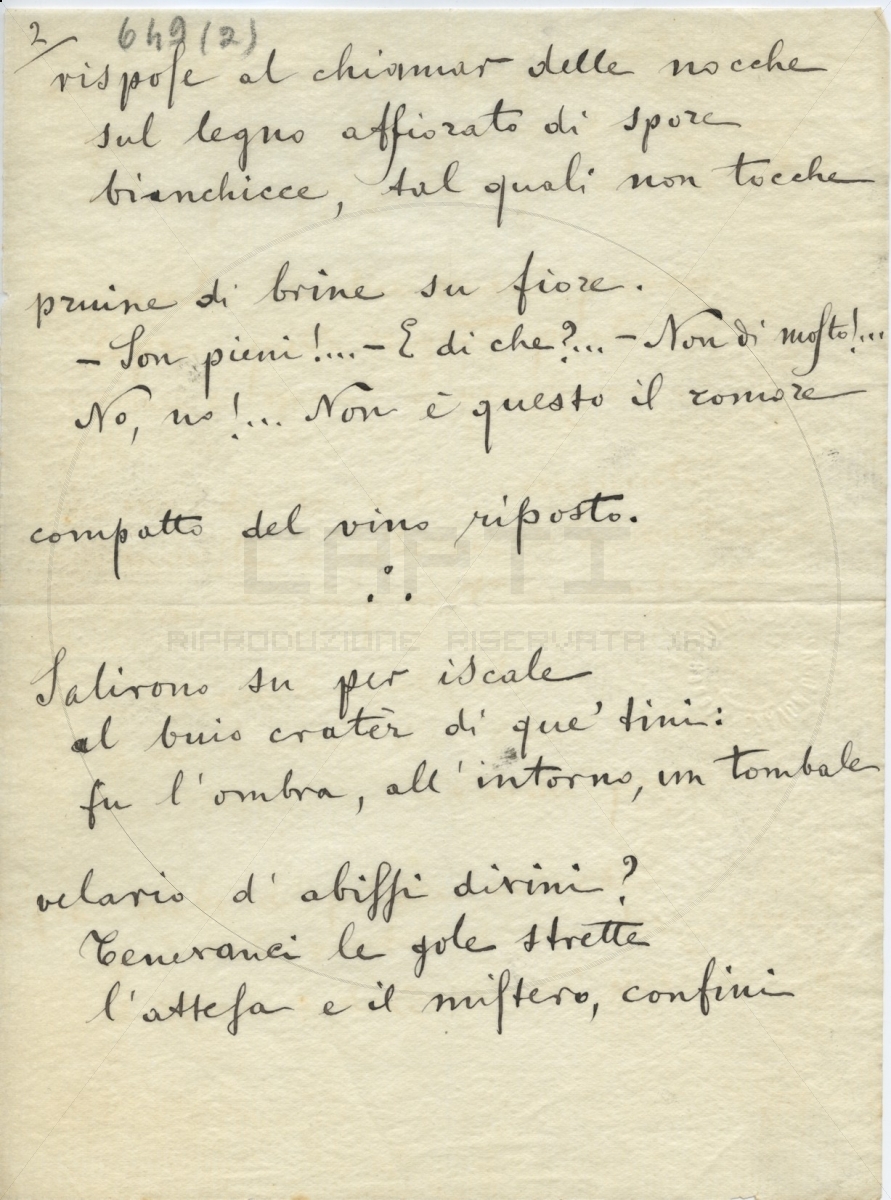 2/ 649 (2)
rispose al chiamar delle nocche
sul legno affiorato di spore
bianchicce, tal quali non tocche
pruine di brine su fiore.
– Son pieni!... – E di che?... – Non di mosto!...
No, no!... Non è questo il romore
compatto del vino riposto.
LAPTI
RIPRODUZIONE RISERVATA (R)
Salirono su per iscale
al buio cratèr di que' tini:
fu l'ombra, all'intorno, un tombale
velario d'abissi divini?
Teneranci le gole strette
l'attesa e il mistero, confini